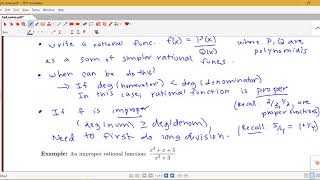 • Write a rational func. f(x) = P(x)/Q(x) where P, Q are polynomials
as a sum of simpler rational funcs.
• when can be do this?
→ If deg(numerator) < deg(denominator)
In this case, rational function is proper
(Recall 2/3, 1/2, are proper fractions)
• If f is improper
(deg(num) ≥ deg(denom)
(Recall 5/4 = 1 + 1/4)
Need to first do long division.
Example: An improper rational function: